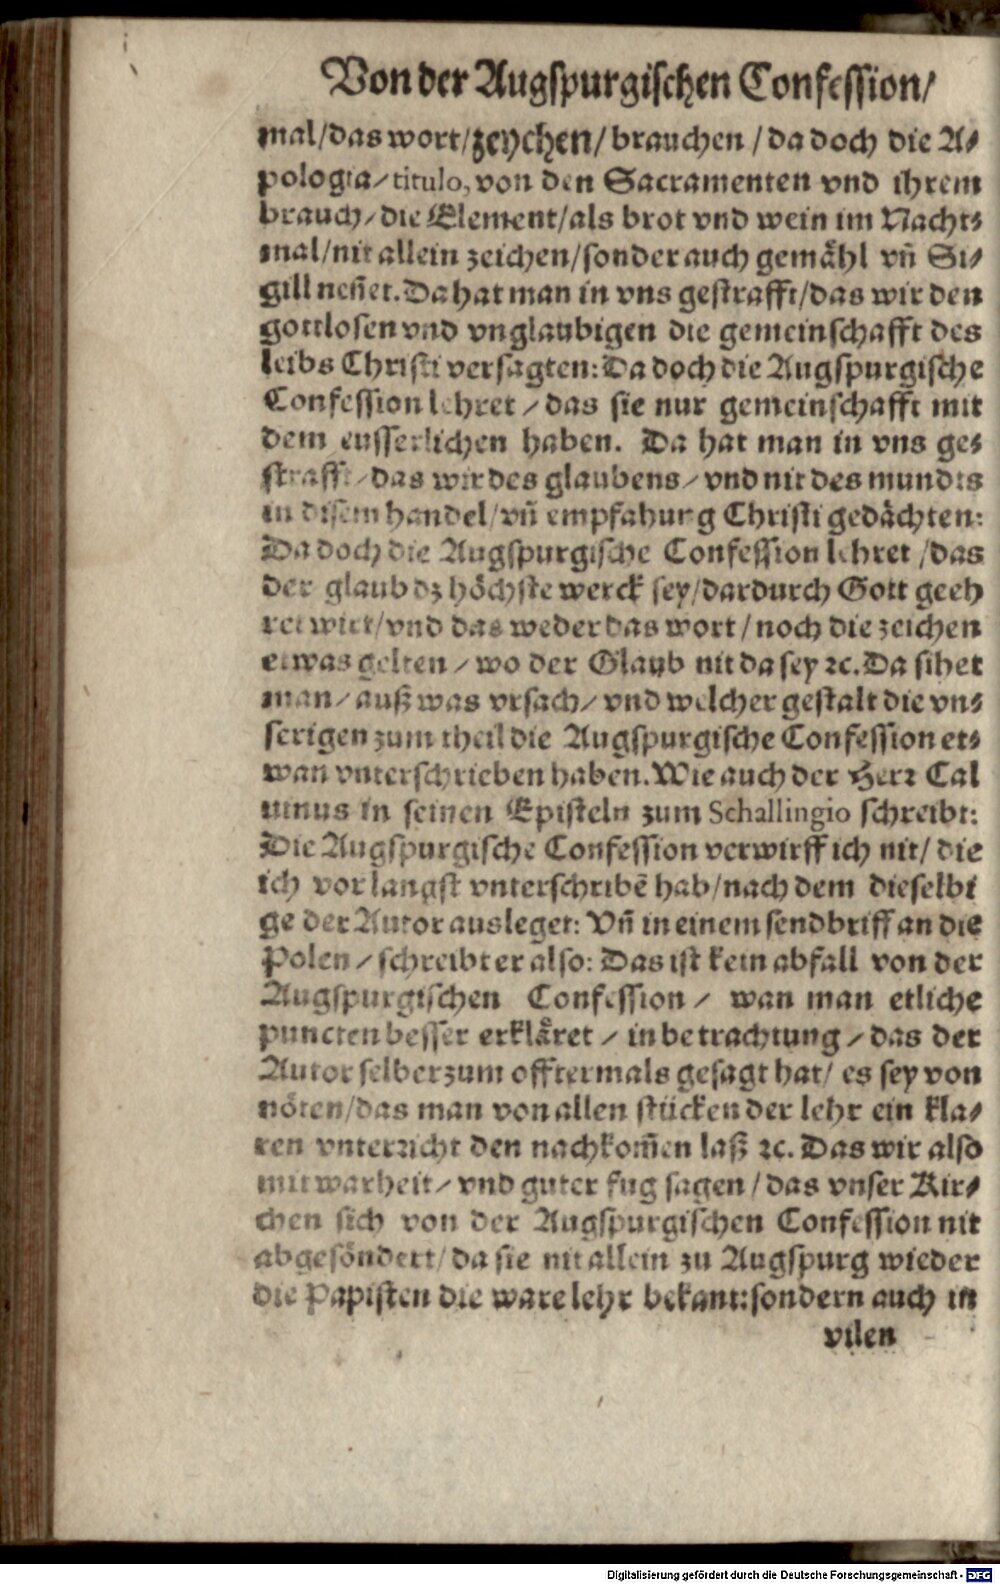 Von der Augspurgischen Confession/
mal/das wort/zeychen/brauchen/da doch die A⸗
pologia/titulo, von den Sacramenten vnd ihrem
brauch/die Element/als brot vnd wein im Nacht⸗
mal/nit allein zeichen/sonder auch gemaͤhl vn̄ Si⸗
gill nen̄et. Da hat man in vns gestrafft/das wir den
gottlosen vnd vnglaubigen die gemeinschafft des
leibs Christi versagten: Da doch die Augspurgische
Confession lehret/das sie nur gemeinschafft mit
dem eusserlichen haben. Da hat man in vns ge⸗
strafft/das wir des glaubens/vnd nit des mundts
in disem handel/vn̄ empfahung Christi gedaͤchten:
Da doch die Augspurgische Confession lehret/das
der glaub dz hoͤchste werck sey/dardurch Gott geeh
ret wirt/vnd das weder das wort/noch die zeichen
etwas gelten/wo der Glaub nit da sey ꝛc. Da sihet
man/auß was vrsach/vnd welcher gestalt die vn⸗
serigen zum theil die Augspurgische Confession et⸗
wan vnterschrieben haben. Wie auch der Herꝛ Cal
uinus in seinen Episteln zum Schallingio schreibt:
Die Augspurgische Confession verwirff ich nit/die
ich vorlangst vnterschribē hab/nach dem dieselbi
ge der Autor ausleget: Vn̄ in einem sendbriff an die
Polen/schreibt er also: Das ist kein abfall von der
Augspurgischen Confession/ wan man etliche
puncten besser erklaͤret/in betrachtung/das der
Autor selber zum offtermals gesagt hat/es sey von
noͤten/das man von allen stuͤcken der lehr ein kla⸗
ren vnterꝛicht den nachkom̄en laß ꝛc. Das wir also
mit warheit/vnd guter fug sagen/das vnser Kir⸗
chen sich von der Augspurgischen Confession nit
abgesoͤndert/da sie nit allein zu Augspurg wieder
die Papisten die ware lehr bekant: sondern auch in
vilen
Digitalisierung gefördert durch die Deutsche Forschungsgemeinschaft - DFG